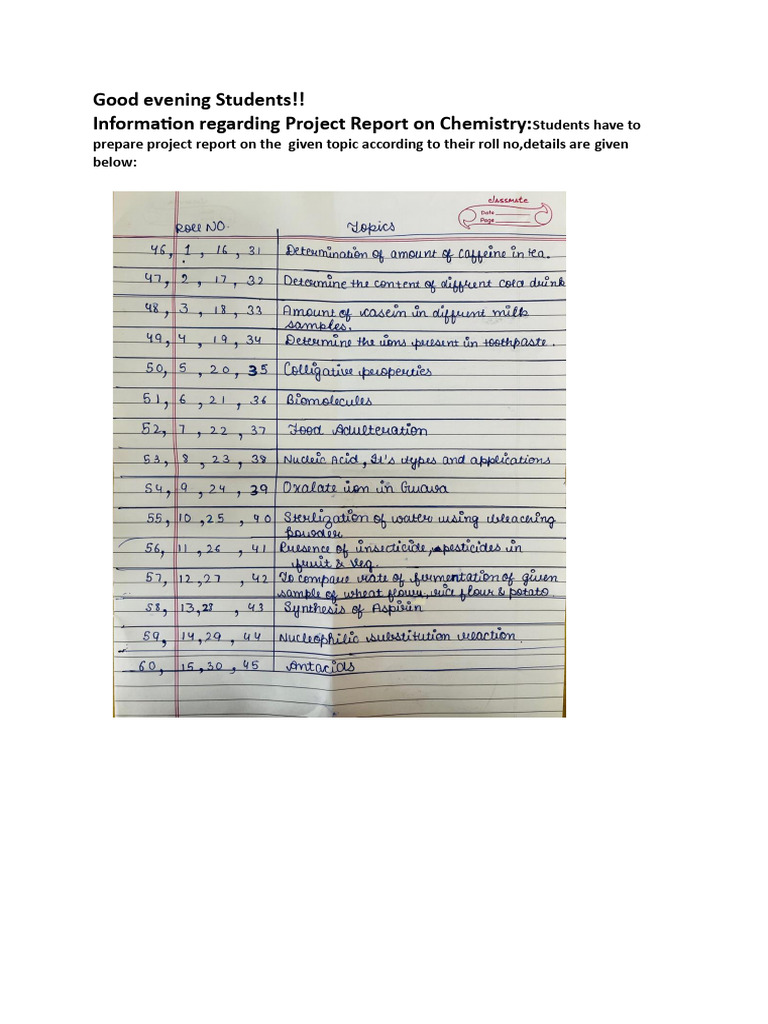 Good evening Students!!
Information regarding Project Report on Chemistry:Students have to
prepare project report on the given topic according to their roll no,details are given
below:
classmate
Date
Page
Roll NO. Topics
46, 1, 16, 31 Determination of amount of caffeine in tea.
47, 2, 17, 32 Determine the content of diffrent cold drink
48, 3, 18, 33 Amount of casein in diffrent milk
samples.
49, 4, 19, 34 Determine the ions present in toothpaste.
50, 5, 20, 35 Colligative properties
51, 6, 21, 36 Biomolecules
52, 7, 22, 37 Food Adulteration
53, 8, 23, 38 Nucleic Acid, It's types and applications
54, 9, 24, 39 Oxalate ion in Guava
55, 10, 25, 40 Sterlization of water using bleaching
powder
56, 11, 26, 41 Presence of insecticide, pesticides in
fruit & veg.
57, 12, 27, 42 To compare rate of fermentation of given
sample of wheat flour, rice flour & potato.
58, 13, 28, 43 Synthesis of Aspirin
59, 14, 29, 44 Nucleophilic substitution reaction.
60, 15, 30, 45 Antacids